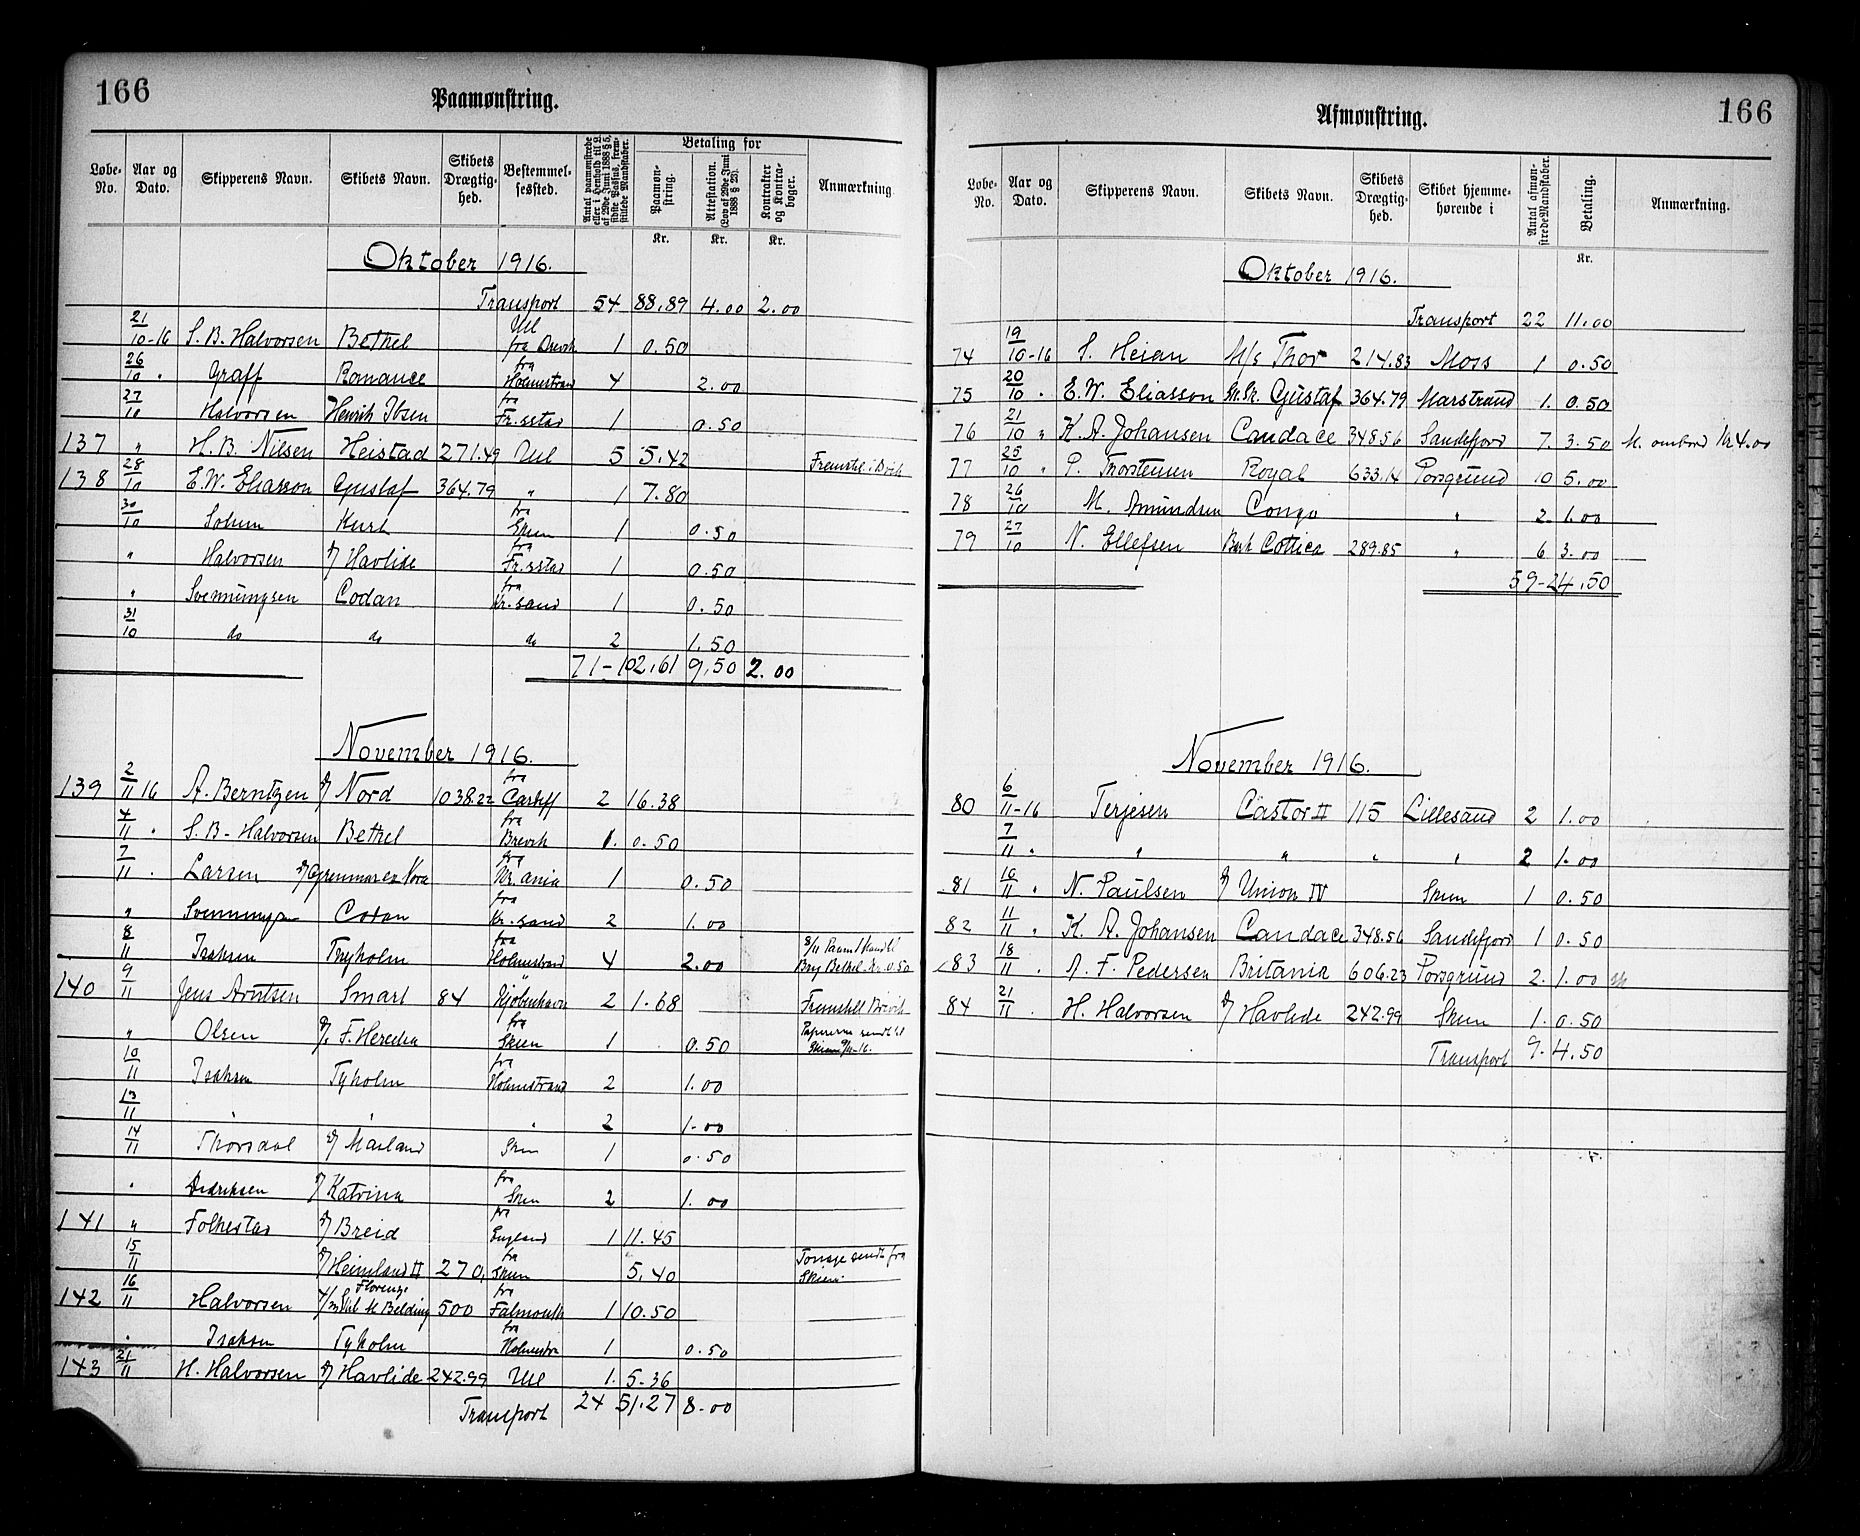 166
Paamønstring.
Løbe-No. | Aar og Dato. | Skipperens Navn. | Skibets Navn. | Skibets Drægtighed. | Bestemmelsessted. | Antal paamønstrede eller i Henhold til L. af 29de Juni 1888 § 5, sidste Passus, fremstillede Mandskaber. | Betaling for | Anmærkning
Paamønstring. | Attestation. (Lov af 29de Juni 1888 § 23). | Kontrakter og Kontrabøger.
Kr. | Kr. | Kr.
Oktober 1916.
Transport 54 88.89 4.00 2.00
21/10-16 S. B. Halvorsen Bethel Utl fra Brevik 1 0.50
26/10 " Graff Romance fra Holmestrand 4 2.00
27/10 Halvorsen Henrik Ibsen fra Fr.sstad 1 0.50
137 " H. B. Nilsen Heistad 271.49 Utl 5 5.42 Fremstil. i Brvik
138 28/10 E. W. Eliasson Gustaf 364.79 " 1 7.80
30/10 Solum Kurt fra Skien 1 0.50
" Halvorsen D/ Havlide fra Fr.sstad 1 0.50
" Svennungsen Codan fra Kr.sand 1 0.50
31/10 do do do 2 1.50
71 - 102.61 9.50 2.00
November 1916.
139 2/11 16 A. Berntzen D/ Nord 1038.22 fra Cardiff 2 16.38
4/11 " S. B. Halvorsen Bethel fra Brevik 1. 0.50
7/11 " Larsen D/ Grenmar ex Nora fra Kr.ania 1 0.50
" Svennungsen Codan fra Kr.sand 2 1.00
8/11 Isaksen Tryholm fra Holmestrand 4 2.00 8/11 Paam 1 Mand til Brig Bethel Kr. 0.50
140 9/11 Jens Arntsen Smart 84 Kjøbenhavn 2 1.68 Fremstillt Brevik
" Olsen D/ F. Heredia fra Skien 1 0.50 Papirerne sendt til Skien 9/11-16.
10/11 Isaksen Tyholm fra Holmestrand 2 1.00
13/11 " " " 2 1.00
14/11 Thorsdal D/ Marland Skien 1 0.50
" Dedriksen D/ Katrina fra Skien 2 1.00
141 " Folkestad D/ Breid fra England 1 11.45
15/11 D/ Heimland II 270, fra Skien 5.40 Tonage sendt fra Skien.
142 16/11 Halvorsen Florence M Belding 500 fra Falmouth 1 10.50
" Isaksen Tyholm fra Holmestra 1 0.50
143 21/11 H. Halvorsen D/ Havlide 242.99 Utl 1. 5.36
Transport 24 51.27 8.00
166
Afmønstring.
Løbe-No. | Aar og Dato. | Skipperens Navn. | Skibets Navn. | Skibets Drægtighed. | Skibet hjemmehørende i | Antal afmønstrede Mandskaber. | Betaling. | Anmærkning.
Kr.
Oktober 1916.
Transport 22 11.00
74 19/10-16 S. Heian M/s Thor 214.83 Moss 1 0.50
75 20/10 " E. W. Eliasson M.Sk. Gustaf 364.79 Marstrand 1. 0.50
76 21/10 " K. A. Johansen Candace 348.56 Sandefjord 7. 3.50 M. ombord Kr 4.00
77 25/10 " P. Thorstensen Royal 633.14 Porsgrund 10 5.00
78 26/10 M. Amundsen Congo " 2. 1.00
79 27/10 N. Ellefsen Bark Cottica 289.85 " 6 3.00
59 - 24.50
November 1916.
80 6/11-16 Terjesen Castor II 115 Lillesand 2 1.00
7/11 " " " " " 2 1.00
81 10/11 " N. Paulsen D/ Union IV Skien 1 0.50
82 11/11 " K. A. Johansen Candace 348.56 Sandefjord 1 0.50
83 18/11 " A. F. Pedersen Britania 606.23 Porsgrund 2. 1.00
84 21/11 " H. Halvorsen D/ Havlide 242.99 Skien 1. 0.50
Transport 9. 4.50